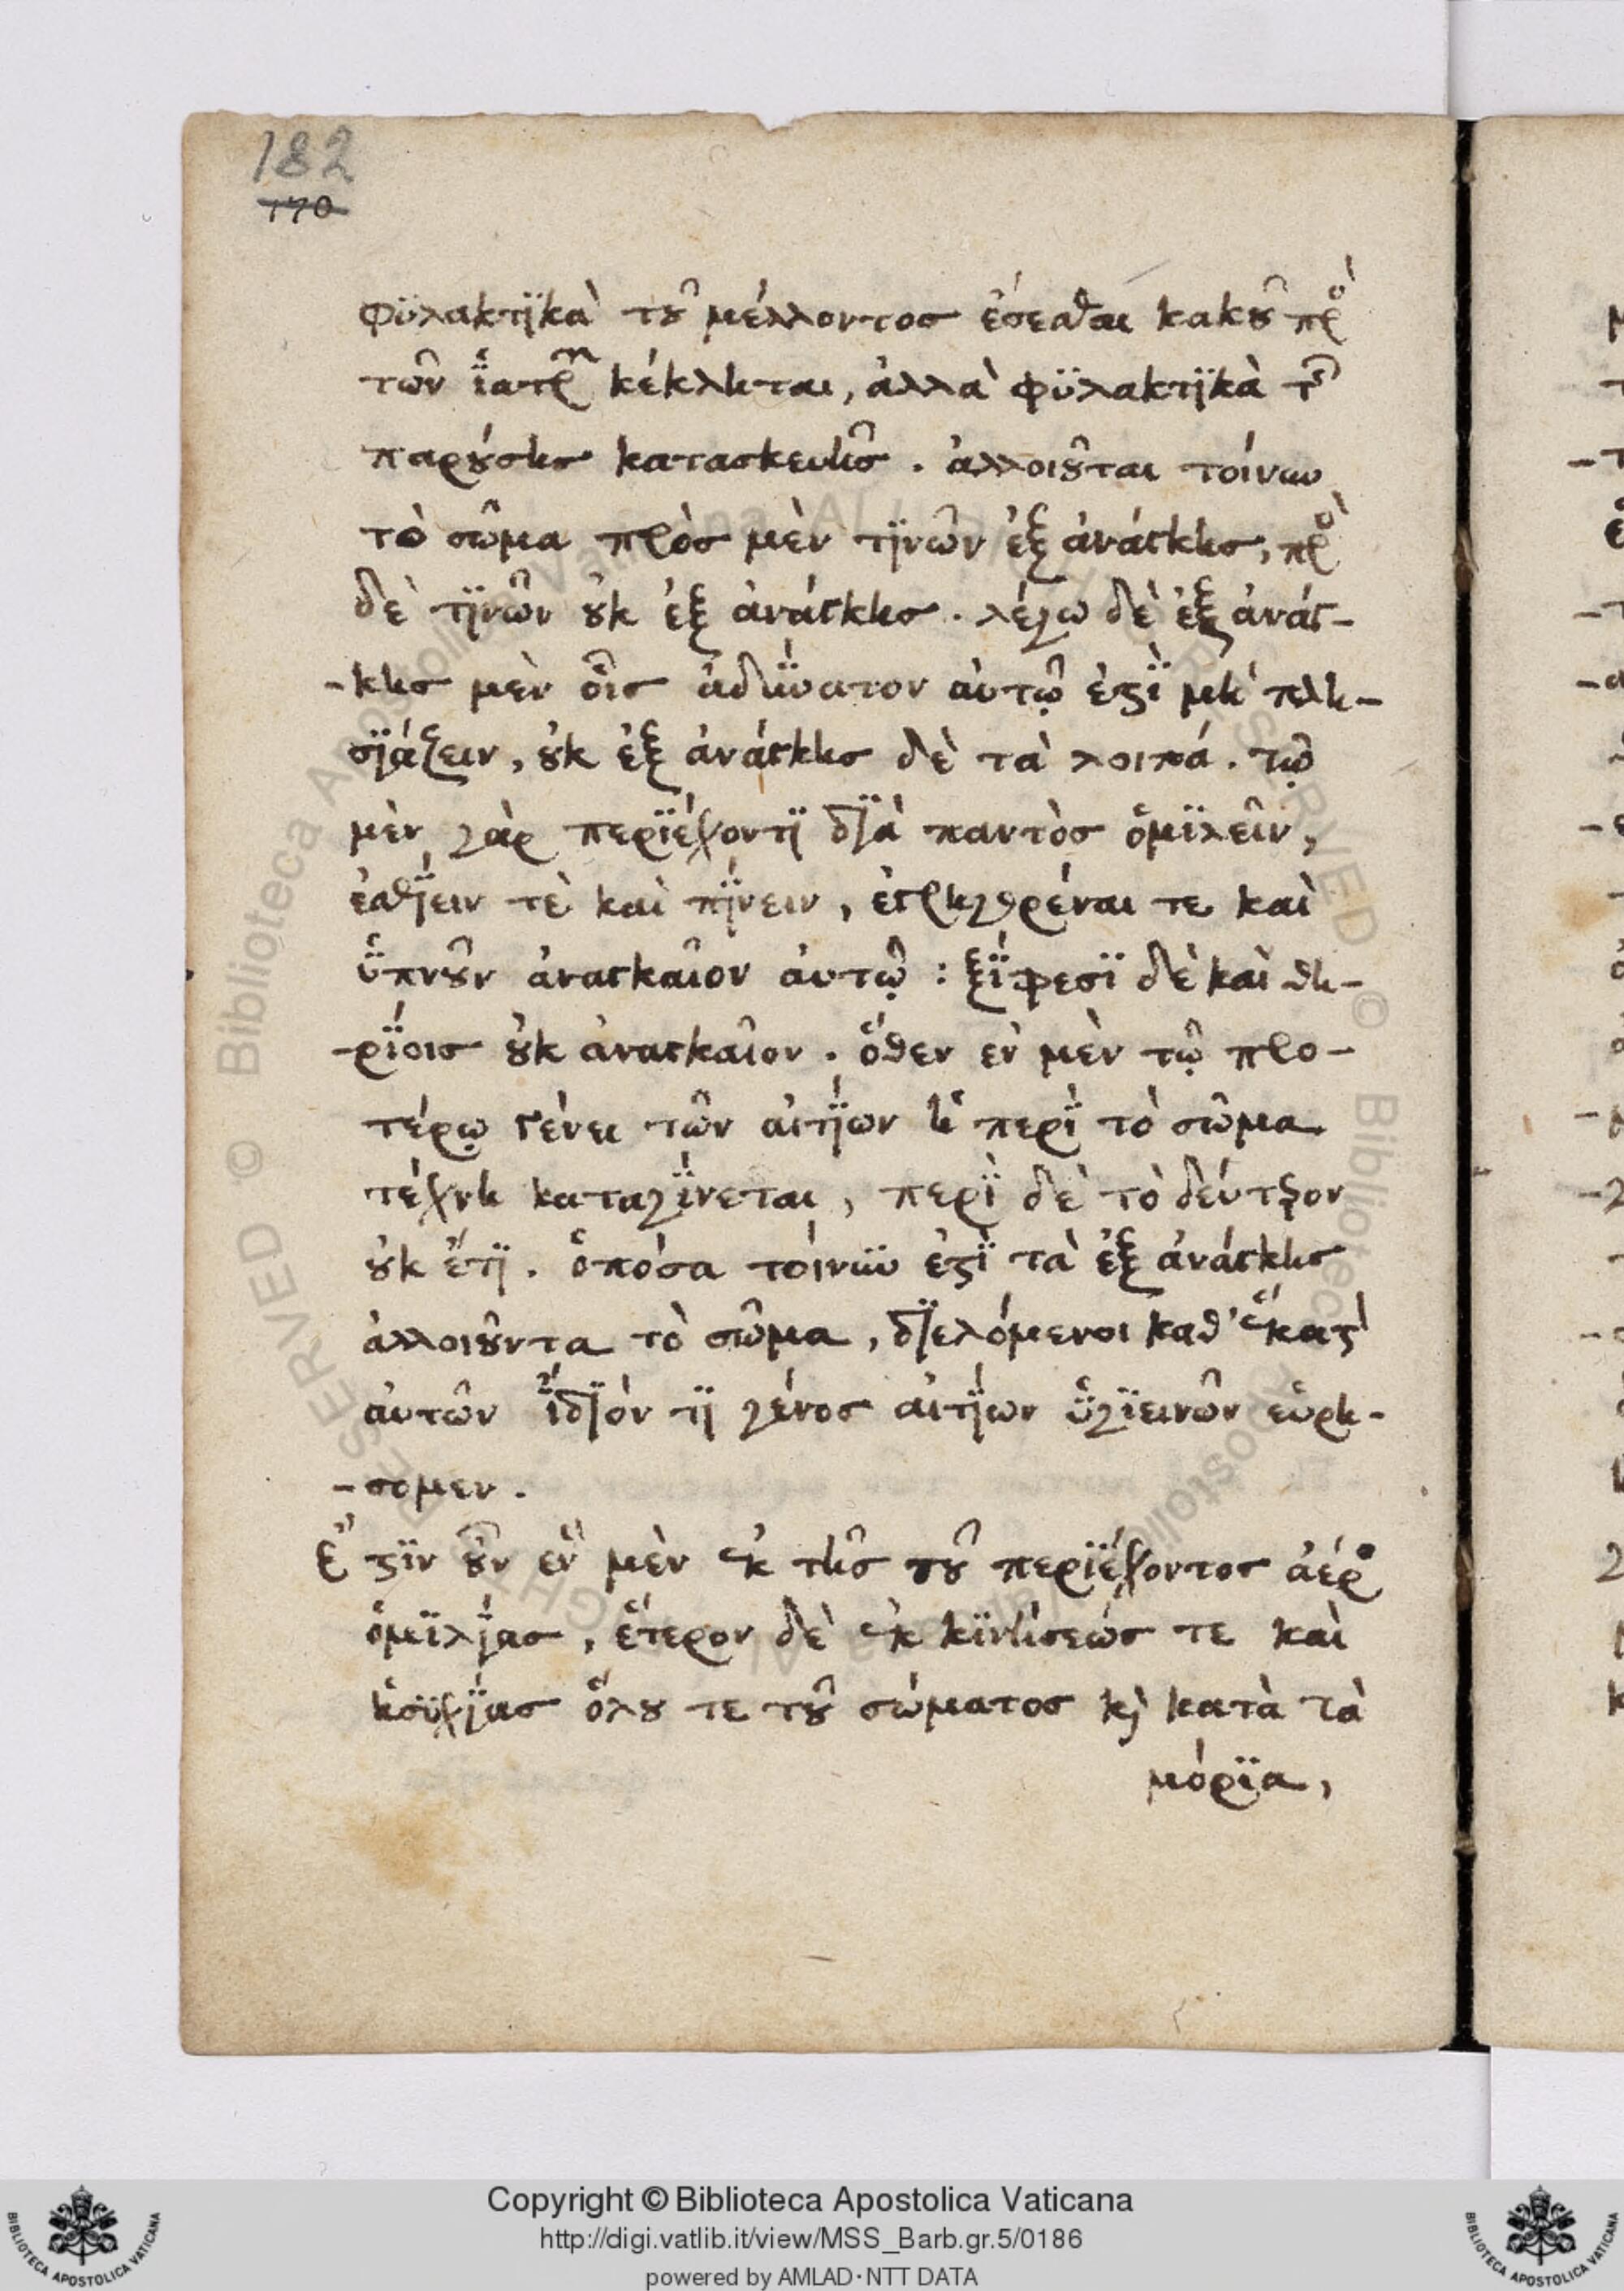 182
170
φϋλακτϊκὰ τȣ͂ μέλλοντος ἔσεσθαι κακȣ͂ πρὸ
τῶν ἰ̈ατρῶν κέκληται, ἀλλὰ φϋλακτϊκὰ τῆς
παρȣ́σης κατασκευῆς . ἀλλοιȣ͂ται τοίνυν
τὸ σῶμα πρὸς μὲν τϊνῶν ἐξ ἀνάγκης, πρὸς
δὲ τϊνῶν ȣ̓κ ἐξ ἀνάγκης . λέγω δὲ ἐξ ἀνάγ-
-κης μὲν οἷς ἀδΰνατον αὐτῷ ἐϛὶ̈ μὴ πλη-
σϊάζειν, ȣ̓κ ἐξ ἀνάγκης δὲ τὰ λοιπά . τῷ
μὲν γὰρ περϊέχοντϊ δϊὰ παντὸς ὁμϊλεῖν,
ἐσθΐειν τὲ καὶ πΐνειν, ἐγρηγορέναι τε καὶ
ὑ̈πνȣ͂ν ἀναγκαῖον αὐτῷ : ξΐφεσϊ δὲ καὶ θη-
-ρΐοις ȣ̓κ ἀναγκαῖον . ὅθεν ἐν μὲν τῷ προ-
τέρῳ γένει τῶν αἰτΐων ἡ περὶ̈ τὸ σῶμα
τέχνη καταγΐνεται, περὶ̈ δὲ τὸ δεύτερον
ȣ̓κ ἔτϊ . ὁπόσα τοίνϋν ἐϛὶ̈ τὰ ἐξ ἀνάγκης
ἀλλοιȣ͂ντα τὸ σῶμα, δϊελόμενοι καθ' ἕκαϛον
αὐτῶν ἴ̈δϊόν τϊ γένος αἰτΐων ὑ̈γϊεινῶν εὑρή-
-σομεν .
Ἔ ϛϊν ȣ͂̓ν ἓν μὲν ἐκ τῆς τȣ͂ περϊέχοντος ἀέρος
ὁμϊλΐας, ἕτερον δὲ ἐκ κϊνήσεώς τε καὶ
ἡσϋχΐας ὅλȣ τε τȣ͂ σώματος κὶ κατὰ τὰ
μόρϊα,
Copyright © Biblioteca Apostolica Vaticana
http://digi.vatlib.it/view/MSS_Barb.gr.5/0186
powered by AMLAD·NTT DATA